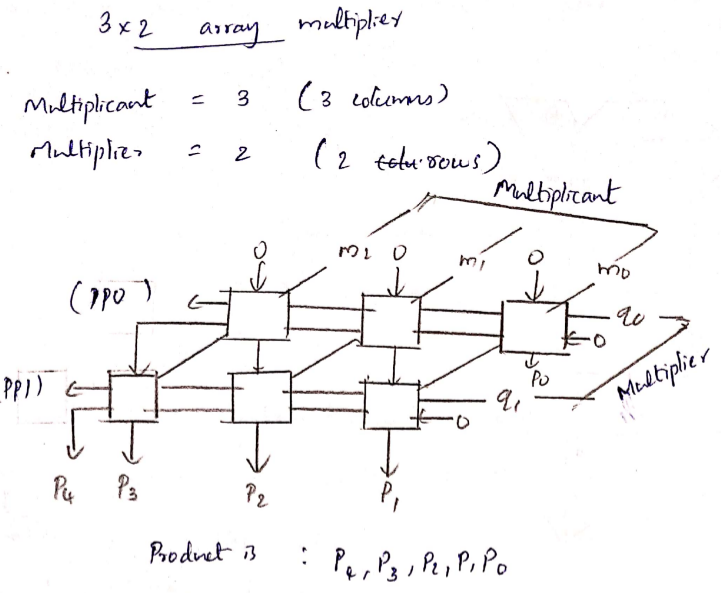 3 x 2 array multiplier
Multiplicant = 3 (3 columns)
Multiplier = 2 (2 rows)
Multiplicant
0 m2 0 m1 0 m0
(PP0) q0
0
P0
Multiplier
PP1) q1
0
P4 P3 P2 P1
Product is : P4, P3, P2, P1 P0